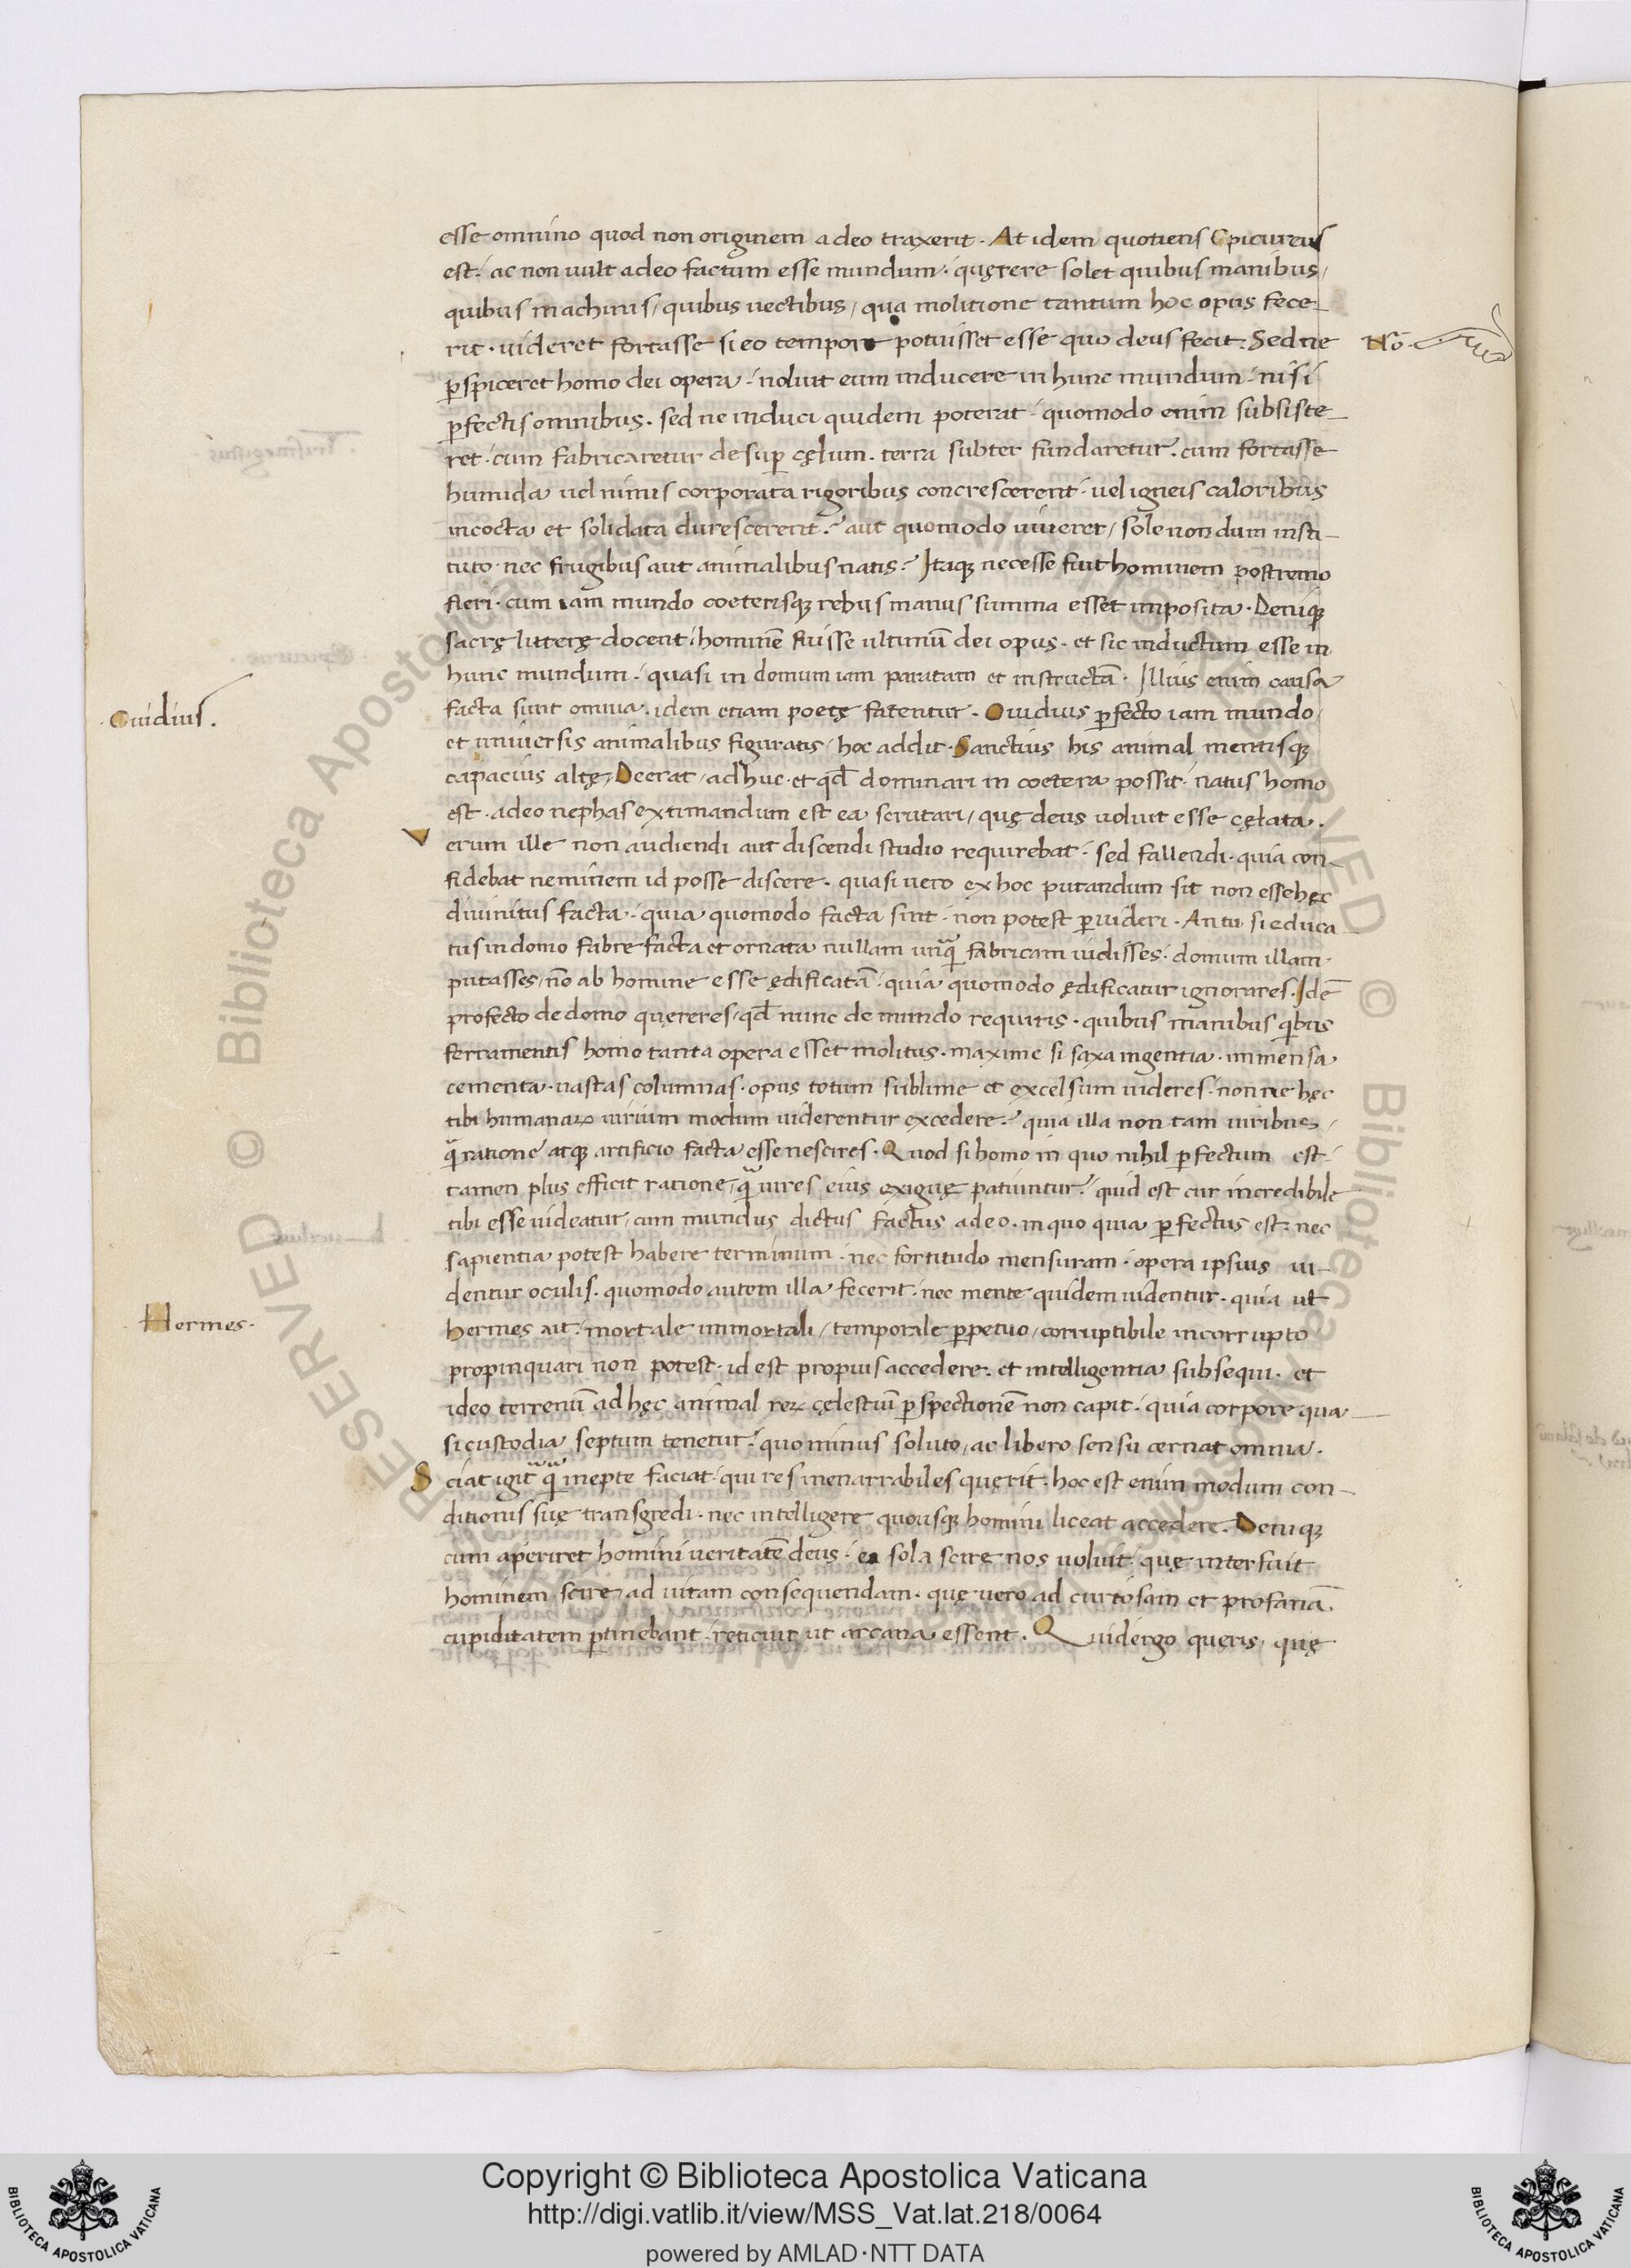 esse omnino quod non originem a deo traxerit. At idem quotiens Epicureus
est. ac non uult a deo factum esse mundum. quęrere solet quibus manibus,
quibus machinis, quibus uectibus, qua molitione tantum hoc opus fece-
rit. uideret fortasse si eo tempore potuisset esse quo deus fecit. Sed ne
No.
ꝑspiceret homo dei opera. noluit eum inducere in hunc mundum. nisi
ꝑfectis omnibus. sed ne induci quidem poterat. quomodo enim subsiste-
ret. cum fabricaretur desuꝑ cęlum. terra subter fundaretur. cum fortasse
humida uel nimis corporata rigoribus concrescerent. uel igneis caloribus
incocta et solidata durescerent? aut quomodo uiueret, sole nondum insti-
tuto. nec frugibus aut animalibus natis? Itaqꝫ necesse fuit hominem postremo
fieri. cum iam mundo coeterisqꝫ rebus manus summa esset imposita. Deniqꝫ
sacrę litterę docent. hominē fuisse ultimū dei opus. et sic inductum esse in
hunc mundum. quasi in domum iam paratam et instructā. Illius enim causa
facta sunt omnia. idem etiam poetę fatentur. Ouidius ꝑfecto iam mundo,
Ouidius.
et uniuersis animalibus figuratis, hoc addit. Sanctius his animal mentisqꝫ
capacius altę, Deerat, adhuc. et qd̄ dominari in coetera possit. natus homo
est. adeo nephas extimandum est ea scrutari, quę deus uoluit esse cęlata.
V
erum ille non audiendi aut discendi studio requirebat. sed fallendi. quia con-
fidebat neminem id posse discere. quasi uero ex hoc putandum sit non esse hęc
diuinitus facta. quia quomodo facta sint. non potest ꝑuideri. An tu si educa
tus in domo fabrefacta et ornata nullam unq̄ fabricam uidisses. domum illam.
putasses, nō ab homine esse ędificatā. quia quomodo ędificatur ignorares. Idē
profecto de domo quęreres, qd̄ nunc de mundo requiris. quibus manibus qibus
ferramentis homo tanta opera esset molitus. maxime si saxa ingentia. immensa
cementa. uastas columnas. opus totum sublime et excelsum uideres. nonne hęc
tibi humanaꝝ uirium modum uiderentur excedere? quia illa non tam uiribus,
q̄ ratione atqꝫ artificio facta esse nescires. Quod si homo in quo nihil ꝑfectum est.
tamen plus efficit ratione, q̄ uires eius exiguę patiuntur. quid est cur incredibile
tibi esse uideatur, cum mundus dictus factus a deo. in quo quia ꝑfectus est. nec
sapientia potest habere terminum. nec fortitudo mensuram. opera ipsius ui-
dentur oculis. quomodo autem illa fecerit. nec mente quidem uidentur. quia ut
hermes ait. mortale immortali, temporale ꝑpetuo, corruptibile incorrupto
Hermes.
propinquari non potest. id est propius accedere. et intelligentia subsequi. et
ideo terrenū adhęc animal reꝝ cęlestiū ꝑspectionē non capit. quia corpore qua-
si custodia septum tenetur. quominus soluto, ac libero sensu cernat omnia.
S
ciat igit̄ q̄ inepte faciat. qui res inenarrabiles quęrit. hoc est enim modum con-
ditionis suę transgredi. nec intelligere quousqꝫ homini liceat accedere. Deniqꝫ
cum aperiret homini ueritatē deus. ea sola scire nos uoluit. quę interfuit
hominem scire, ad uitam consequendam. quę uero ad curiosam et profanā.
cupiditatem ꝑtinebant. reticuit ut arcana essent. Quid ergo quęris, quę
Copyright © Biblioteca Apostolica Vaticana
http://digi.vatlib.it/view/MSS_Vat.lat.218/0064
powered by AMLAD·NTT DATA